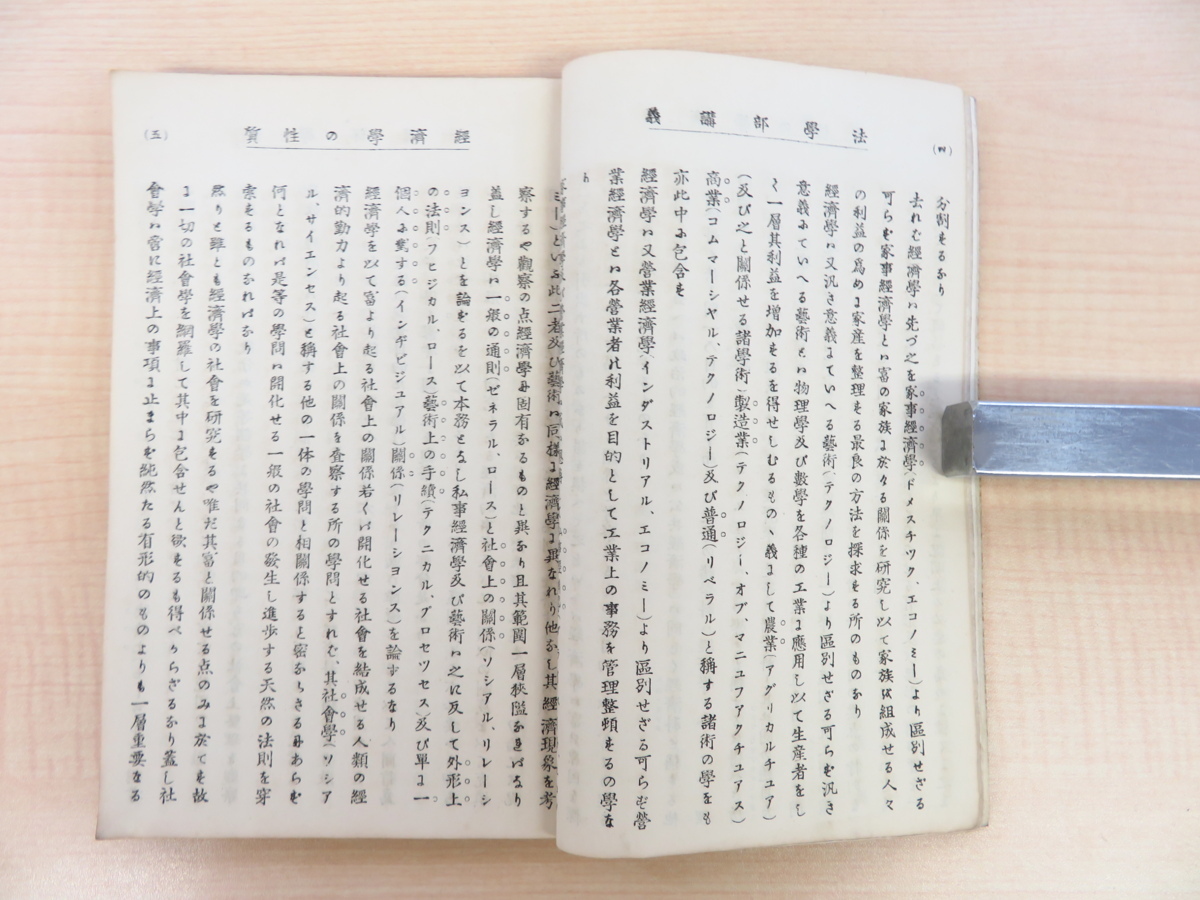 法學部講義
(四)
分割するなり
去れば經濟學ハ先づ之を家事經濟學(ドメスチツク、エコノミー)より區別せざる
可らず家事經濟學とハ富の家族に於ける關係を研究し以て家族を組成せる人々
の利益の爲めに家産を整理する最良の方法を探求する所のものなり
經濟學ハ又汎き意義にていへる藝術(テクノロジー)より區別せざる可らず汎き
意義にていへる藝術とハ物理學及び數學を各種の工業に應用し以て生産者をし
て一層其利益を增加するを得せしむるものゝ義にして農業(アグリカルチユア)
(及び之と關係せる諸學術)製造業(テクノロジー、オブ、マニユフアクチユアス)
商業(コムマーシヤル、テクノロジー)及び普通(リベラル)と稱する諸術の學をも
亦此中に包含す
經濟學ハ又營業經濟學(インダストリアル、エコノミー)より區別せざる可らず營
業經濟學とハ各營業者の利益を目的として工業上の事務を管理整頓するの學な
り
經濟學の性質
(五)
ミー)といふ此二者及び藝術ハ同樣に經濟學に異なれり他なし其經濟現象を考
察するや觀察の点經濟學に固有なるものと異なり且其範圍一層狹隘なればなり
蓋し經濟學ハ一般の通則(ゼネラル、ロース)と社會上の關係(ソシアル、リレーシ
ヨンス)とを論ずるを以て本務となし私事經濟學及び藝術ハ之に反して外形上
の法則(フヒジカル、ロース)藝術上の手續(テクニカル、プロセツセス)及び單に一
個人に對する(インヂビジユアル)關係(リレーシヨンス)を論ずるなり
經濟學を以て富より起る社會上の關係若くハ開化せる社會を結成せる人類の經
濟的動力より起る社會上の關係を査察する所の學問とすれば、其社會學(ソシア
ル、サイエンセス)と稱する他の一体の學問と相關係すると密ならざるにあらず
何となれハ是等の學問ハ開化せる一般の社會の發生し進歩する天然の法則を穿
索するものなればなり
然りと雖とも經濟學の社會を研究するや唯だ其富と關係せる点のみに於てす故
に一切の社會學を網羅して其中に包含せんと欲するも得べからざるなり蓋し社
會學ハ啻に經濟上の事項に止まらず純然たる有形的のものよりも一層重要なる